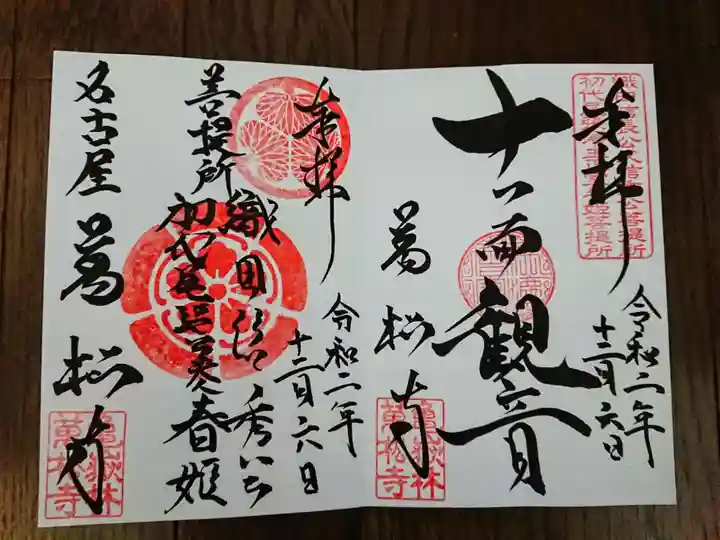 奉拝
令和二年
十二月六日
十一面観音
萬松寺
亀嶽林
萬松寺
奉拝
令和二年
十二月六日
織田信秀
菩提所
初代
春姫
名古屋
萬松寺
亀嶽林
萬松寺